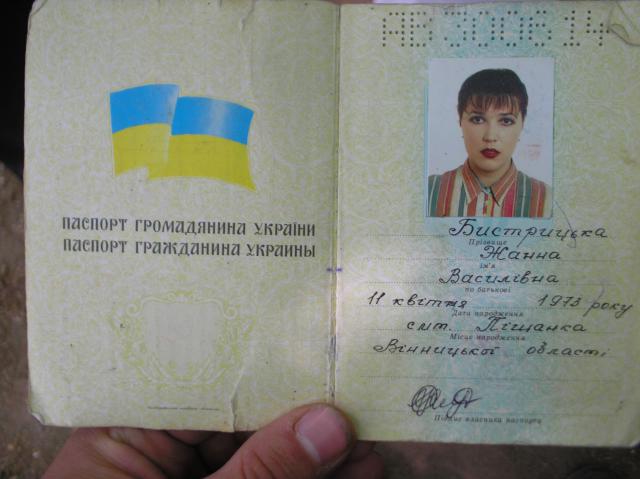 ПАСПОРТ ГРОМАДЯНИНА УКРАЇНИ
ПАСПОРТ ГРАЖДАНИНА УКРАИНЫ
АВ300614
Бистрицька
Прізвище
Жанна
ім'я
Василівна
по батькові
11 квітня 1973 року
Дата народження
смт. Піщанка
Місце народження
Вінницької області
Підпис власника паспорта